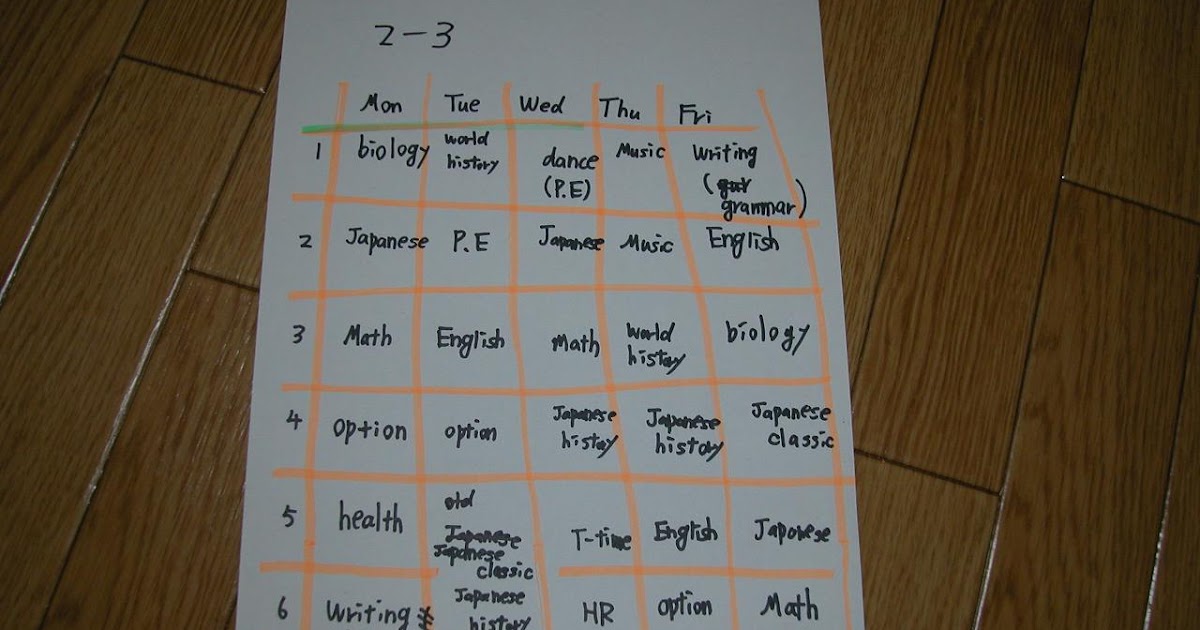 2-3
Mon Tue Wed Thu Fri
1 biology world history dance (P.E) Music Writing (grammar)
2 Japanese P.E Japanese Music English
3 Math English Math world history biology
4 option option Japanese histay Japanese history Japanese classic
5 health old Japanese Japanese classic T-time English Japonese
6 writing Japanese history HR option Math